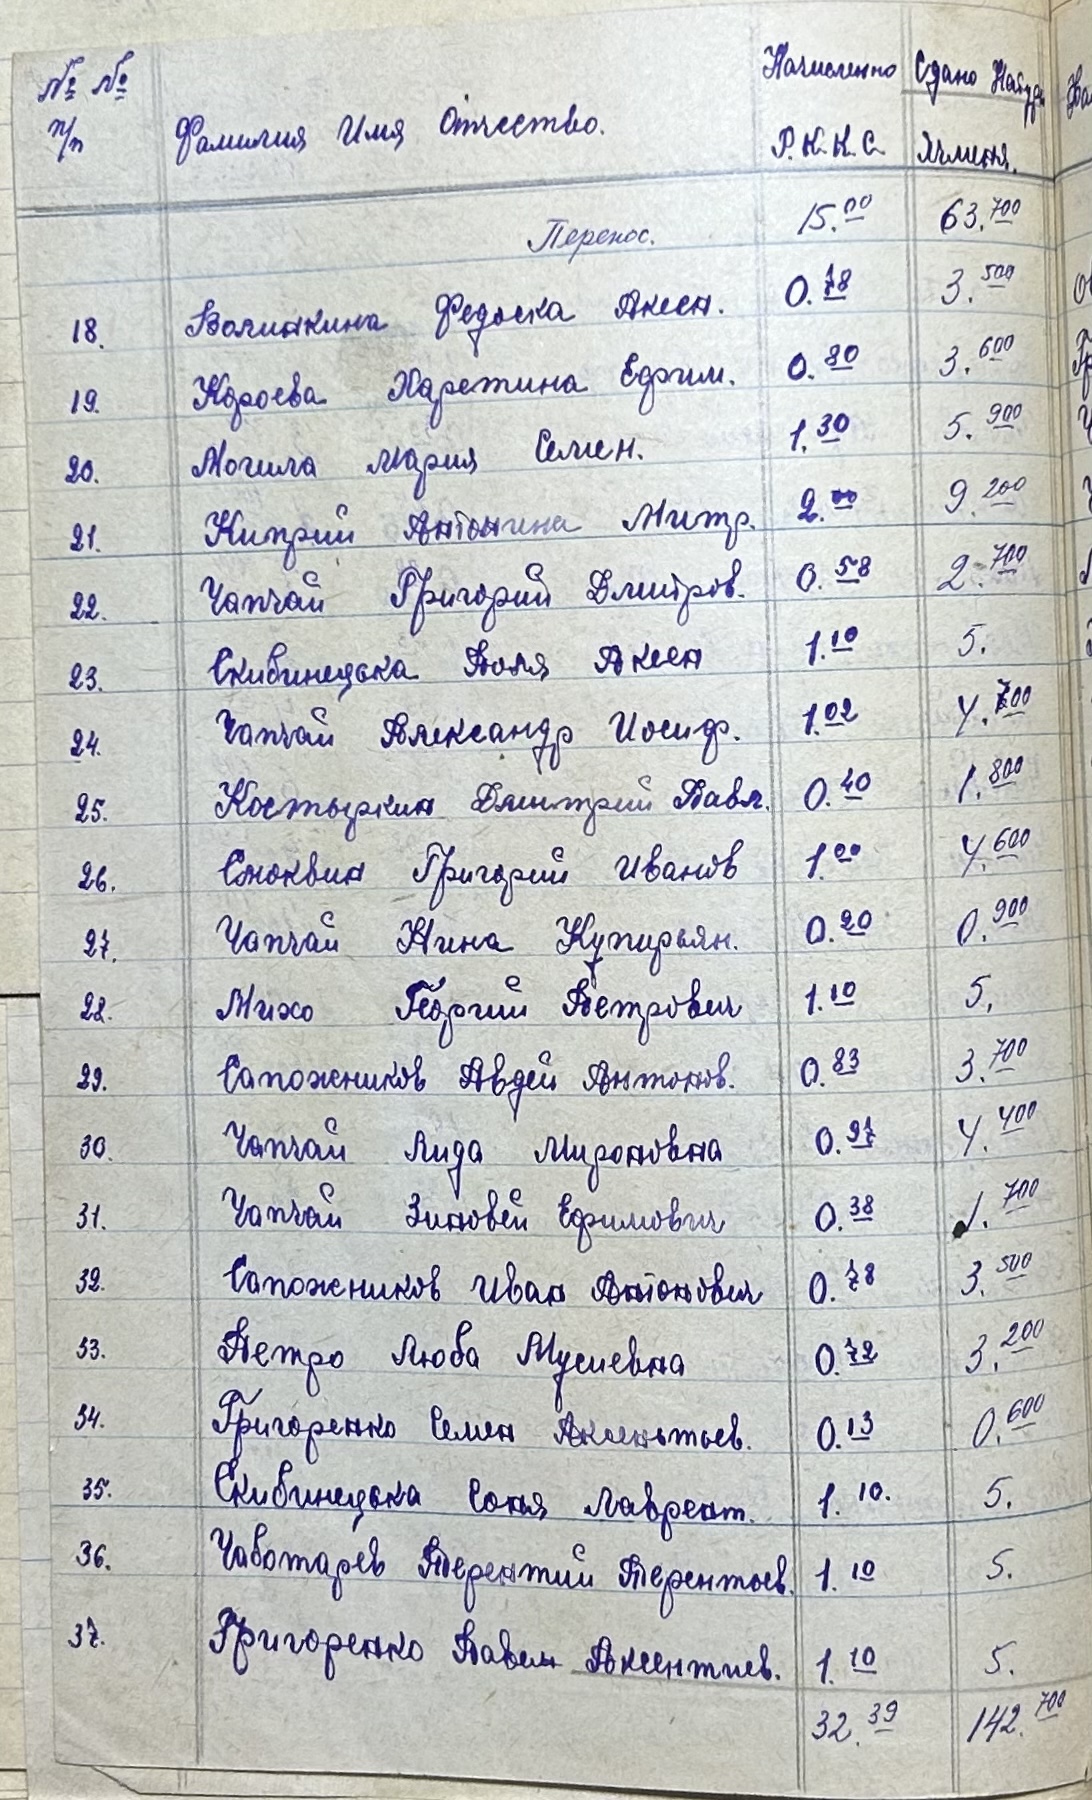 № № Начисленно Сдано Натур
п/п Фамилия Имя Отчество. Р.К.К.С. Ячменя.
Перенос. 15.00 63.700
18. Волинкина Федоска Аксен. 0.78 3.500
19. Юроева Харетина Ефрим. 0.80 3.600
20. Могила Мария Семен. 1.30 5.900
21. Киприй Антонина Митр. 2.00 9.200
22. Чапчай Григорий Дмитров. 0.58 2.700
23. Скибинецька Поля Аксен 1.10 5.
24. Чапчай Александр Иосиф. 1.02 4.700
25. Костыркин Дмитрий Павл. 0.40 1.800
26. Смоквин Григорий Иванов 1.00 4.600
27. Чапчай Нина Куприян. 0.20 0.900
28. Михо Георгий Петрович 1.10 5.
29. Сапожников Авдей Антонов. 0.83 3.700
30. Чапчай Лида Мироновна 0.97 4.400
31. Чапчай Зиновей Ефимович 0.38 1.700
32. Сапожников Иван Антонович 0.78 3.500
33. Петро Люба Мусиевна 0.72 3.200
34. Григоренко Семен Аксентьев. 0.13 0.600
35. Скибинецька Соня Лаврент. 1.10. 5.
36. Чаботарёв Терентий Терентьев. 1.10 5.
37. Григоренко Павел Аксентиев. 1.10 5.
32.39 142.700